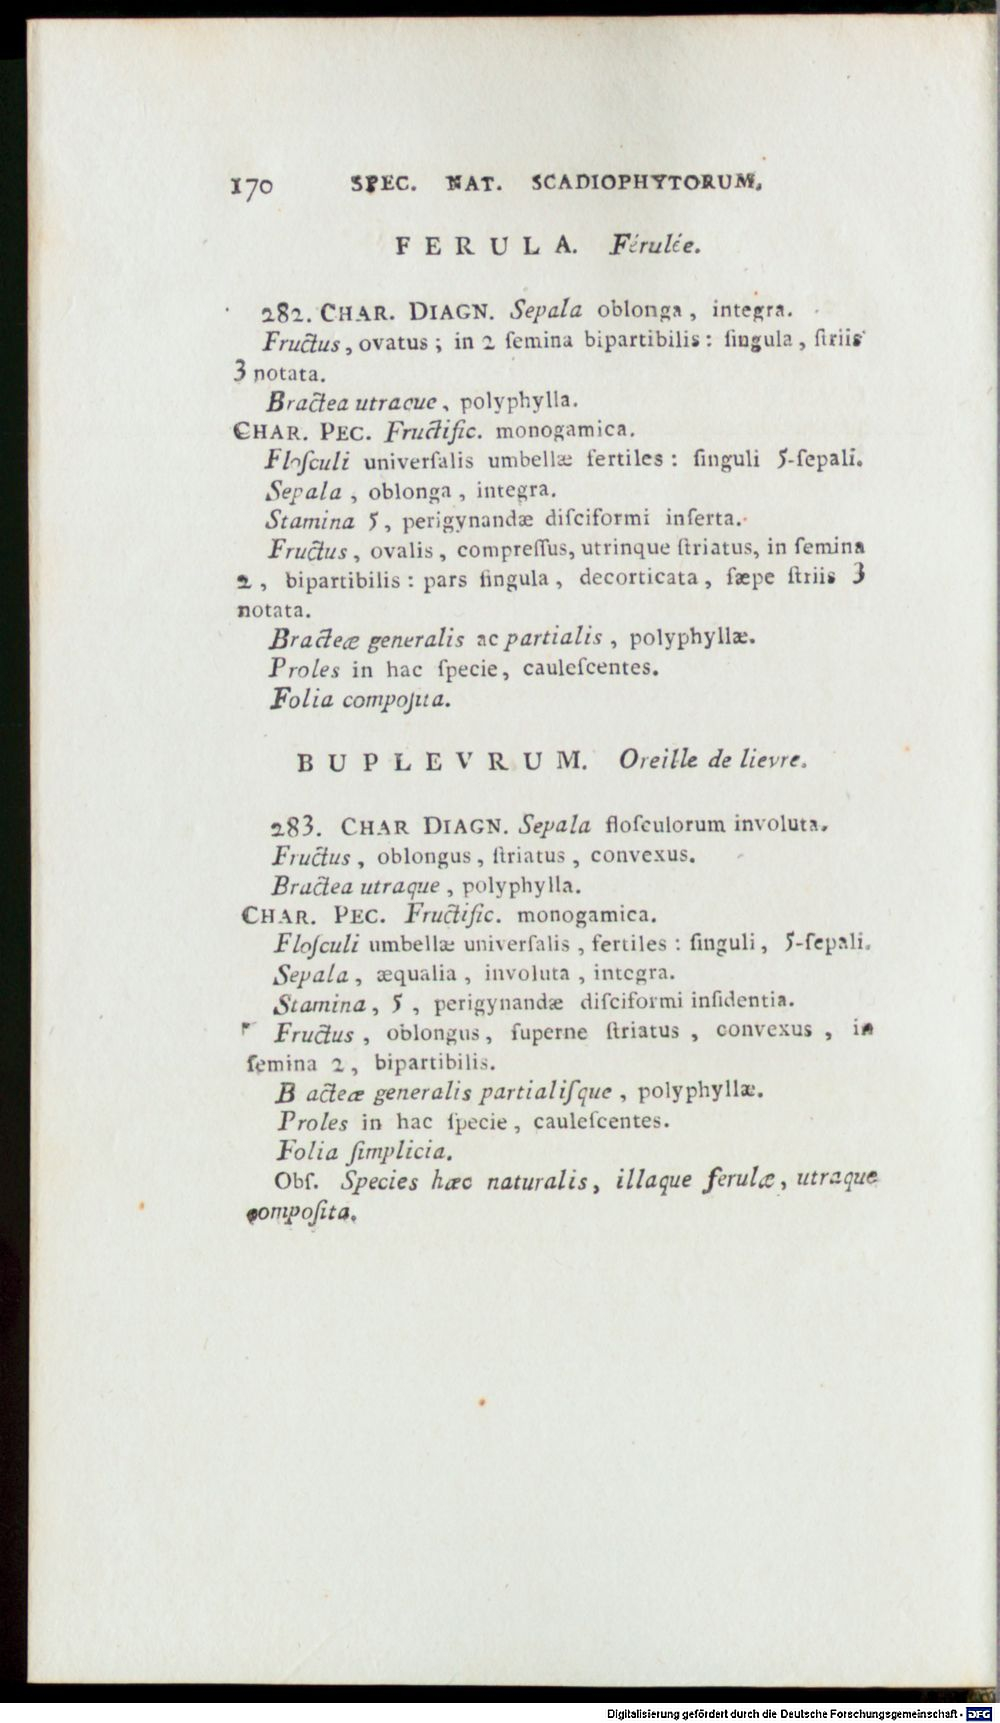 170 SPEC. NAT. SCADIOPHYTORUM.
FERULA. Férulée.
282. CHAR. DIAGN. Sepala oblonga, integra.
Fructus, ovatus; in 2 ſemina bipartibilis: ſingula, ſtriis
3 notata.
Bractea utraque, polyphylla.
CHAR. PEC. Fructific. monogamica.
Floſculi univerſalis umbellæ fertiles: ſinguli 5-ſepali.
Sepala, oblonga, integra.
Stamina 5, perigynandæ diſciformi inſerta.
Fructus, ovalis, compreſſus, utrinque ſtriatus, in ſemina
2, bipartibilis: pars ſingula, decorticata, ſæpe ſtriis 3
notata.
Bracteæ generalis ac partialis, polyphyllæ.
Proles in hac ſpecie, cauleſcentes.
Folia compoſita.
BUPLEVRUM. Oreille de lievre.
283. CHAR DIAGN. Sepala floſculorum involuta.
Fructus, oblongus, ſtriatus, convexus.
Bractea utraque, polyphylla.
CHAR. PEC. Fructific. monogamica.
Floſculi umbellæ univerſalis, fertiles: ſinguli, 5-ſepali.
Sepala, æqualia, involuta, integra.
Stamina, 5, perigynandæ diſciformi inſidentia.
Fructus, oblongus, ſuperne ſtriatus, convexus, in
ſemina 2, bipartibilis.
B acteæ generalis partialiſque, polyphyllæ.
Proles in hac ſpecie, cauleſcentes.
Folia ſimplicia.
Obſ. Species hæc naturalis, illaque ferulæ, utraque
compoſita.
Digitalisierung gefördert durch die Deutsche Forschungsgemeinschaft - DFG